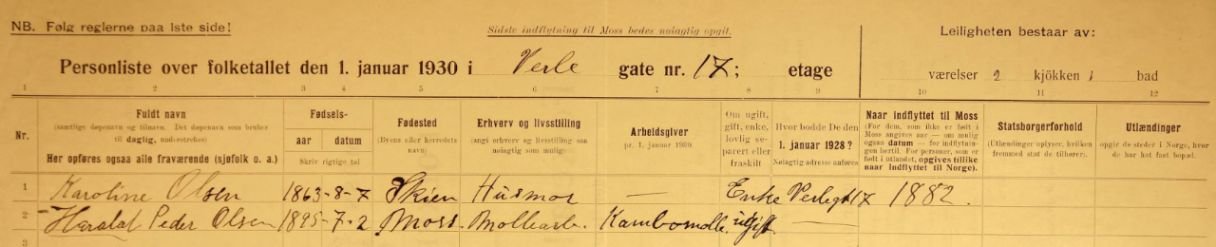 NB. Følg reglerne paa 1ste side!
Sidste indflytning til Moss bedes nøiagtig opgit.
Leiligheten bestaar av:
Personliste over folketallet den 1. januar 1930 i Verle gate nr. 17; etage
værelser 2 kjøkken 1 bad
1 2 3 4 5 6 7 8 9 10 11 12
Nr.
Fuldt navn
(samtlige døpenavn og tilnavn. Det døpenavn som bruker
til daglig, understrekes)
Her opføres ogsaa alle fraværende (sjøfolk o. a.)
Fødsels-
aar datum
Skriv rigtige tal
Fødested
(Byens eller herredets
navn)
Erhverv og livsstilling
(angi erhverv og livsstilling saa
nøiagtig som mulig)
Arbeidsgiver
pr. 1. januar 1930
Om ugift,
gift, enke,
lovlig se-
parert eller
fraskilt
Hvor bodde De den
1. januar 1928?
Nøiagtig adresse anføres
Naar indflyttet til Moss
(For dem, som ikke er født i
Moss angives aar — om mulig
ogsaa datum — for indflytnin-
gen hertil. For personer, som er
født i utlandet, opgives tillike
naar indflyttet til Norge).
Statsborgerforhold
(Utlændinger oplyser, hvilken
fremmed stat de tilhører).
Utlændinger
opgir de steder i Norge, hvor
de har hat fast bopæl.
1 Karoline Olsen 1863-8-7 Skien Husmor — Enke Verlegt 17 1882.
2 Peder Olsen 1895-7-2 Moss Møllearb. Kambomølle ugift
3